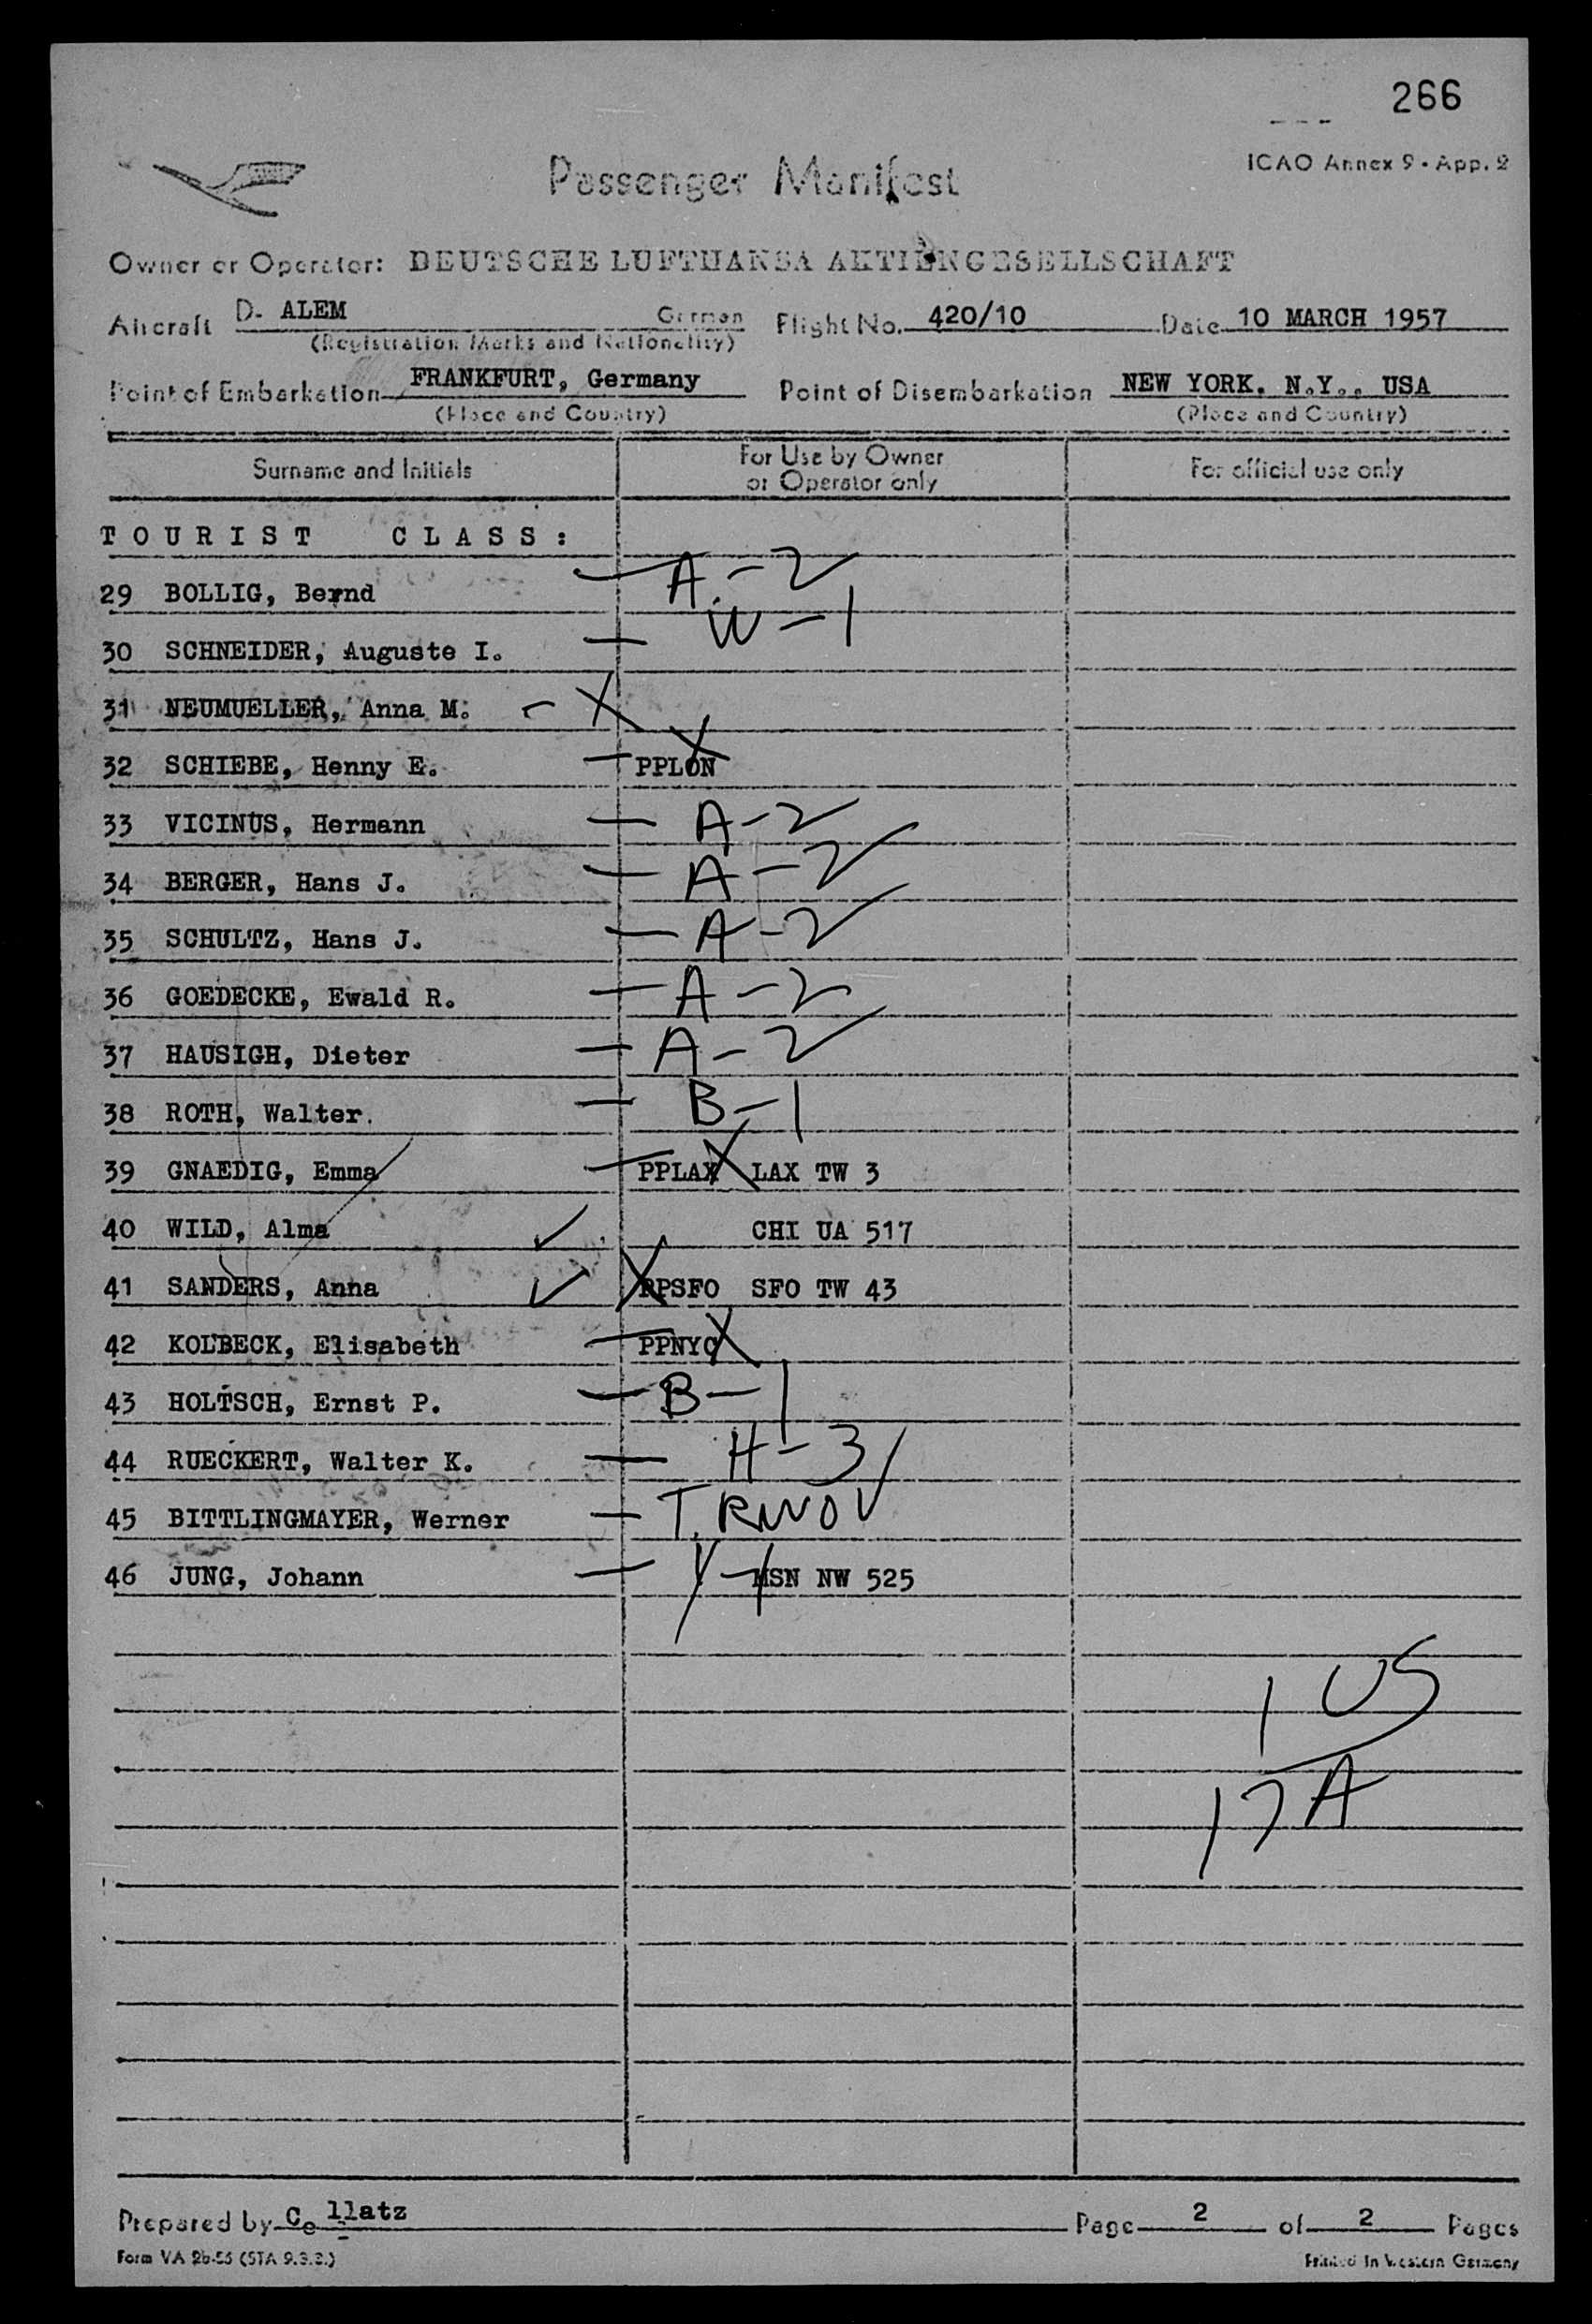 266
Passenger Manifest
ICAO Annex 9 - App. 2
Owner or Operator: DEUTSCHE LUFTHANSA AKTIENGESELLSCHAFT
Aircraft D- ALEM German Flight No. 420/10 Date 10 MARCH 1957
(Registration Marks and Nationality)
Point of Embarkation FRANKFURT, Germany Point of Disembarkation NEW YORK. N.Y., USA
(Place and Country) (Place and Country)
Surname and Initials For Use by Owner or Operator only For official use only
TOURIST CLASS:
29 BOLLIG, Bernd A-2
30 SCHNEIDER, Auguste I. W-1
31 NEUMUELLER, Anna M. X
32 SCHIEBE, Henny E. PPLON X
33 VICINUS, Hermann A-2
34 BERGER, Hans J. A-2
35 SCHULTZ, Hans J. A-2
36 GOEDECKE, Ewald R. A-2
37 HAUSIGH, Dieter A-2
38 ROTH, Walter. B-1
39 GNAEDIG, Emma PPLAX X LAX TW 3
40 WILD, Alma ✓ CHI UA 517
41 SANDERS, Anna ✓ X PPSFO SFO TW 43
42 KOLBECK, Elisabeth PPNYC X
43 HOLTSCH, Ernst P. B-1
44 RUECKERT, Walter K. H-3
45 BITTLINGMAYER, Werner
46 JUNG, Johann MSN NW 525
1 US
17 A
Prepared by Ce llatz Page 2 of 2 Pages
Form VA 2b-55 (STA 9.3.2.) Printed in Western Germany